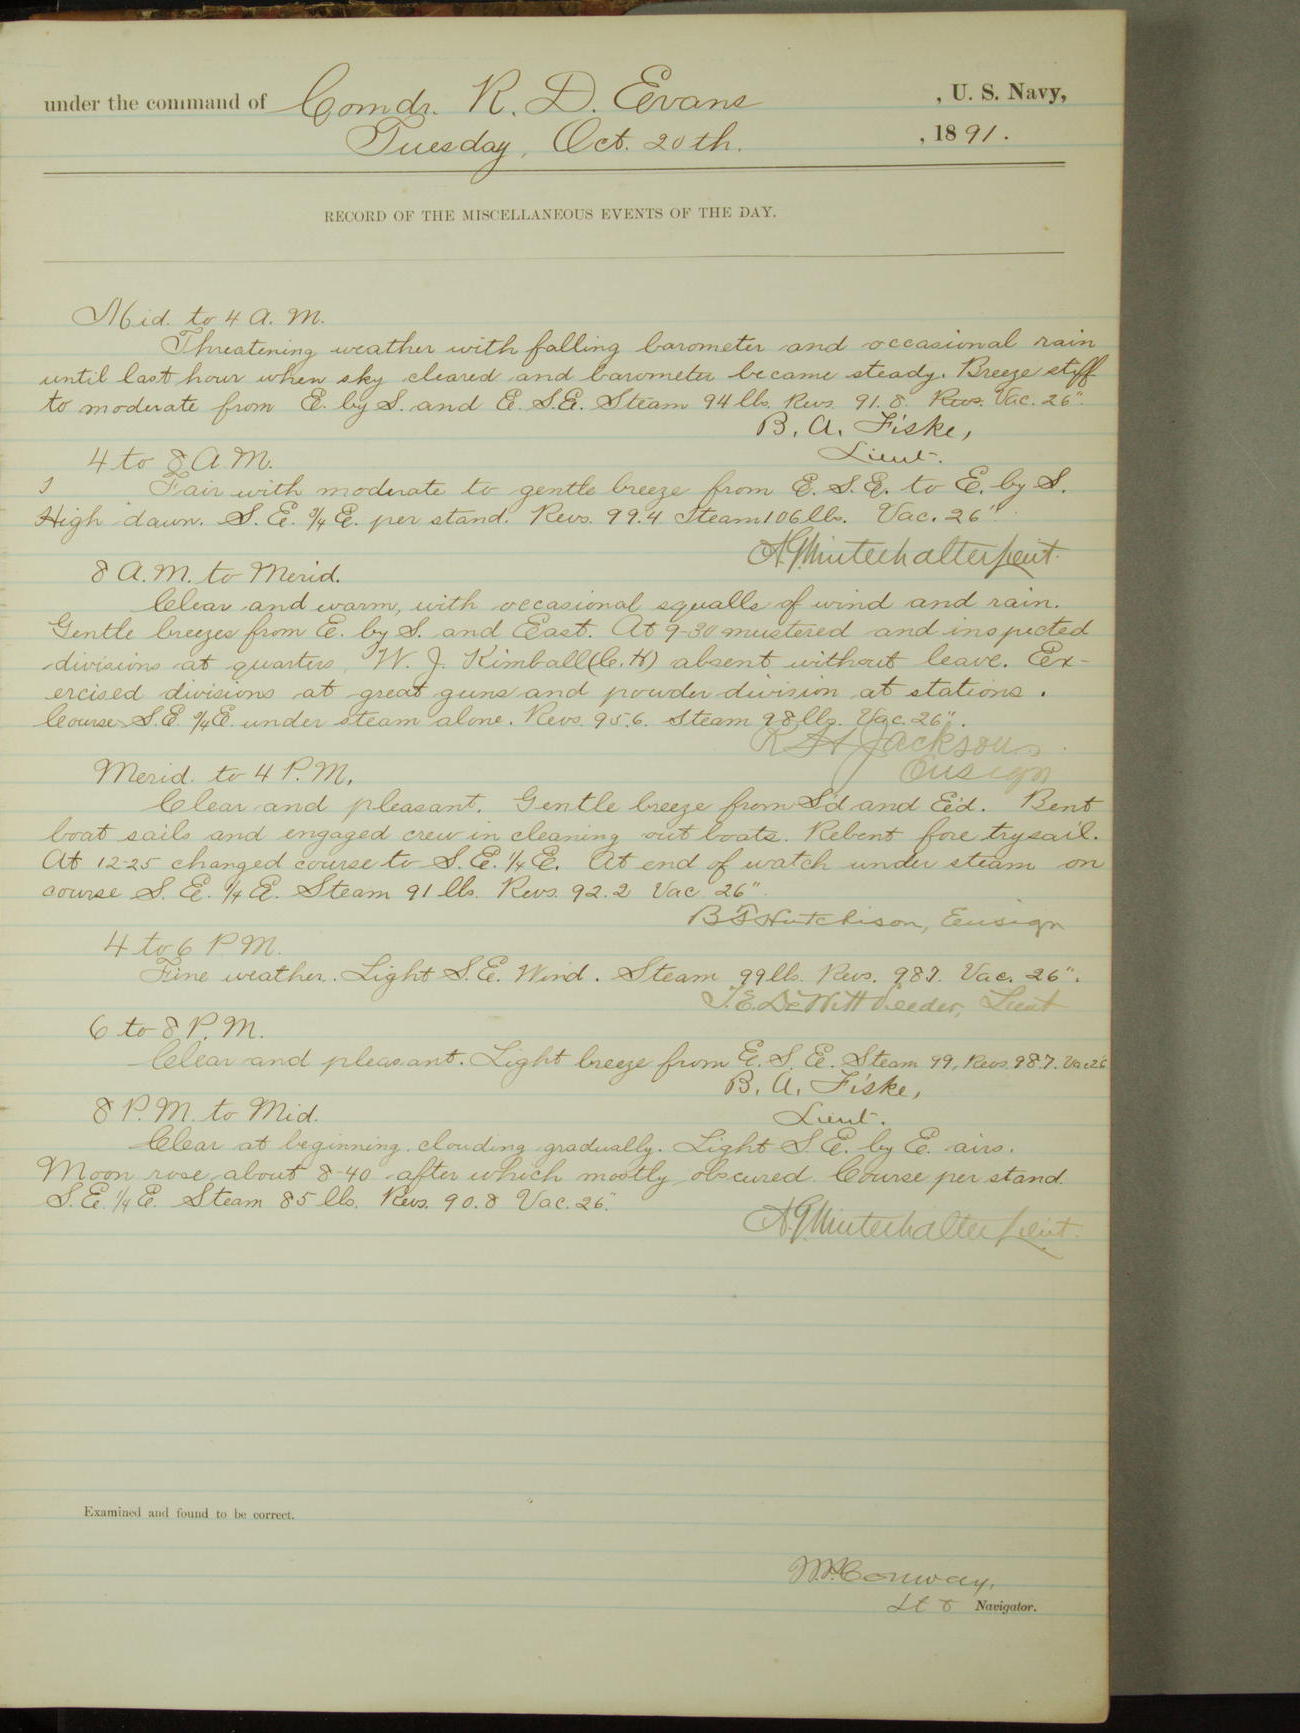 under the command of Comdr. R. D. Evans, U. S. Navy,
Tuesday, Oct. 20th. , 1891.
RECORD OF THE MISCELLANEOUS EVENTS OF THE DAY.
Mid. to 4 A. M.
Threatening weather with falling barometer and occasional rain
until last hour when sky cleared and barometer became steady. Breeze stiff
to moderate from E. by S. and E. S.E. Steam 94 lbs. Revs. 91.8. Revs. Vac. 26".
B. A. Fiske,
Lieut.
4 to 8 A. M.
Fair with moderate to gentle breeze from E. S. E. to E. by S.
High dawn. S. E. 3/4 E. per stand. Revs. 99.4 Steam 106 lbs. Vac. 26".
A. G. Winterhalter Lieut.
8 A. M. to Merid.
Clear and warm, with occasional squalls of wind and rain.
Gentle breezes from E. by S. and East. At 9-30 mustered and inspected
divisions at quarters, W. J. Kimball (C. H) absent without leave. Ex-
ercised divisions at great guns and powder division at stations.
Course S.E. 3/4 E. under steam alone. Revs. 95.6. Steam 98 lbs. Vac. 26".
R H Jackson
Ensign
Merid. to 4 P. M.
Clear and pleasant. Gentle breeze from S'd and E'd. Bent
boat sails and engaged crew in cleaning out boats. Rebent fore trysail.
At 12-25 changed course to S. E. 1/4 E. At end of watch under steam on
course S. E. 1/4 E. Steam 91 lbs. Revs. 92.2 Vac. 26".
B F Hutchison, Ensign
4 to 6 P M.
Fine weather. Light S.E. Wind. Steam 99 lbs. Revs. 98.7. Vac. 26".
T. E. DeWitt Veeder, Lieut
6 to 8 P. M.
Clear and pleasant. Light breeze from E. S. E. Steam 99, Revs. 98.7. Vac 26
B. A. Fiske,
Lieut.
8 P. M. to Mid.
Clear at beginning, clouding gradually. Light S. E. by E. airs.
Moon rose about 8-40 after which mostly obscured. Course per stand.
S. E. 1/4 E. Steam 85 lbs. Revs. 90.8 Vac. 26".
A. G. Winterhalter Lieut.
Examined and found to be correct.
Conway,
Lt & Navigator.